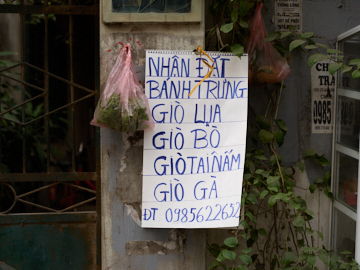 NHẬN ĐẶT
BÁNH TRƯNG
GIÒ LỤA
GIÒ BÒ
GIÒ TAI NẤM
GIÒ GÀ
ĐT 0985622652
0985